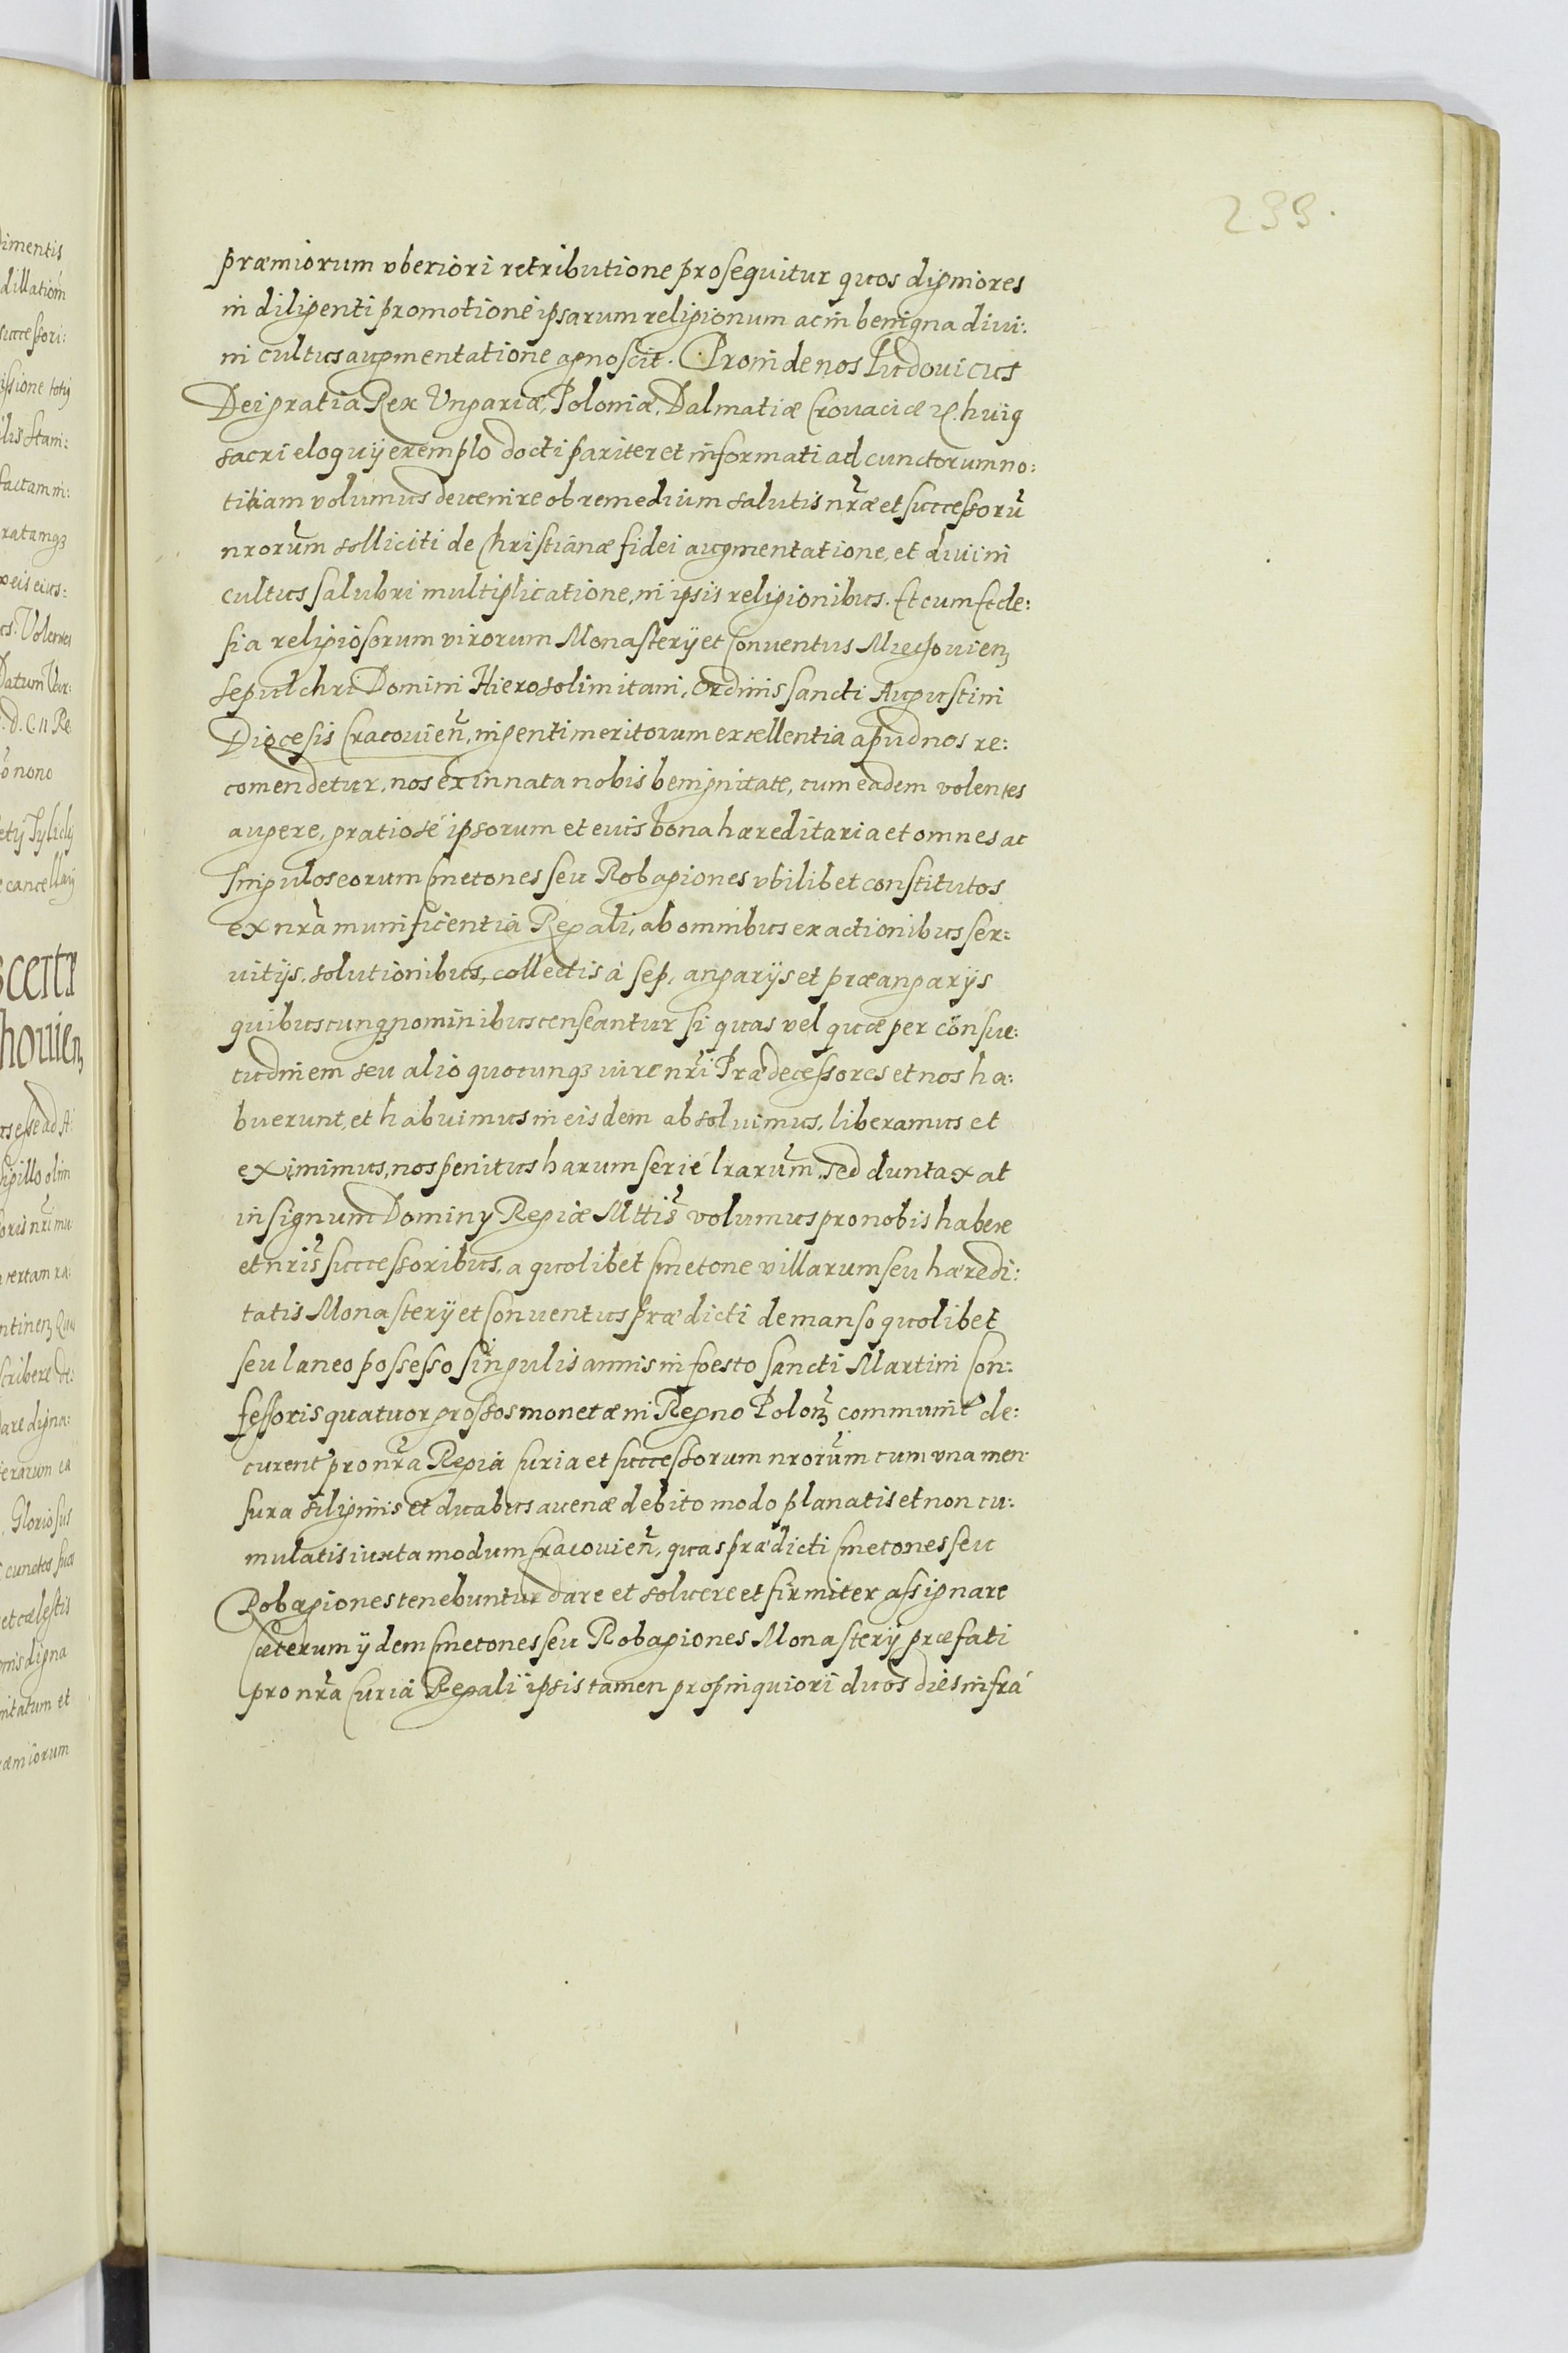 299.
præmiorum vberiori retributione prosequitur quos digniores
in diligenti promotione ipsarum religionum ac in benigna diui:
ni cultus augmentatione agnoscit. Proinde nos Ludouicus
Dei gratia Rex Vngariæ, Poloniæ, Dalmatiæ Crouaciæ &. huiq
sacri eloquij exemplo docti pariter et informati ad cunctorum no:
titiam volumus deuenire ob remedium salutis nr̃æ et successorũ
nrorũm solliciti de Christianæ fidei augmentatione, et diuini
cultus salubri multiplicatione, in ipsis religionibus. Et cum Eccle:
sia religiosorum virorum Monasterij et Conuentus Miechouienʒ
sepulchri Domini Hierosolimitani, Ordinis sancti Augustini
Diocesis Cracouieñ, ingenti meritorum excellentia apud nos re:
comendetur, nos ex innata nobis benignitate, cum eadem volentes
augere, gratiosé ipsorum et eius bona hæreditaria et omnes ac
singulos eorum Cmetones seu Robagiones vbilibet constitutos
ex nrã munificentia Regali, ab omnibus exactionibus ser:
uitijs, solutionibus, collectis à sep, angarijs et præangarijs
quibuscunqʒ nominibus censeantur si quas vel quæ per consue:
tudinem seu alio quocunqʒ iure nrĩ Prædecessores et nos ha:
buerunt, et habuimus in eisdem absoluimus, liberamus et
eximimus, nos penitus harum serié lrarũm, sed duntaxat
in signum Dominy Regiæ Mttis̃ volumus pro nobis habere
et nris̃ successoribus, a quolibet Cmetone villarum seu hæredi:
tatis Monasterij et Conuentus prædicti de manso quolibet
seu laneo possesso singulis annis in foesto sancti Martini Con:
fessoris quatuor grossos monetæ in Regno Polonʒ communit̉ de:
curent pro nrã Regia Curia et successorum nrorũm cum vna men:
sura siliginis et duabus auenæ debito modo planatis et non cu:
mulatis iuxta modum Cracouieñ, quas prædicti Cmetones seu
Robagiones tenebuntur dare et soluere et firmiter assignare
Cæterum ijdem Cmetones seu Robagiones Monasterij præfati
pro nrã Curia Regali ipsis tamen propinquiori duos dies infrá